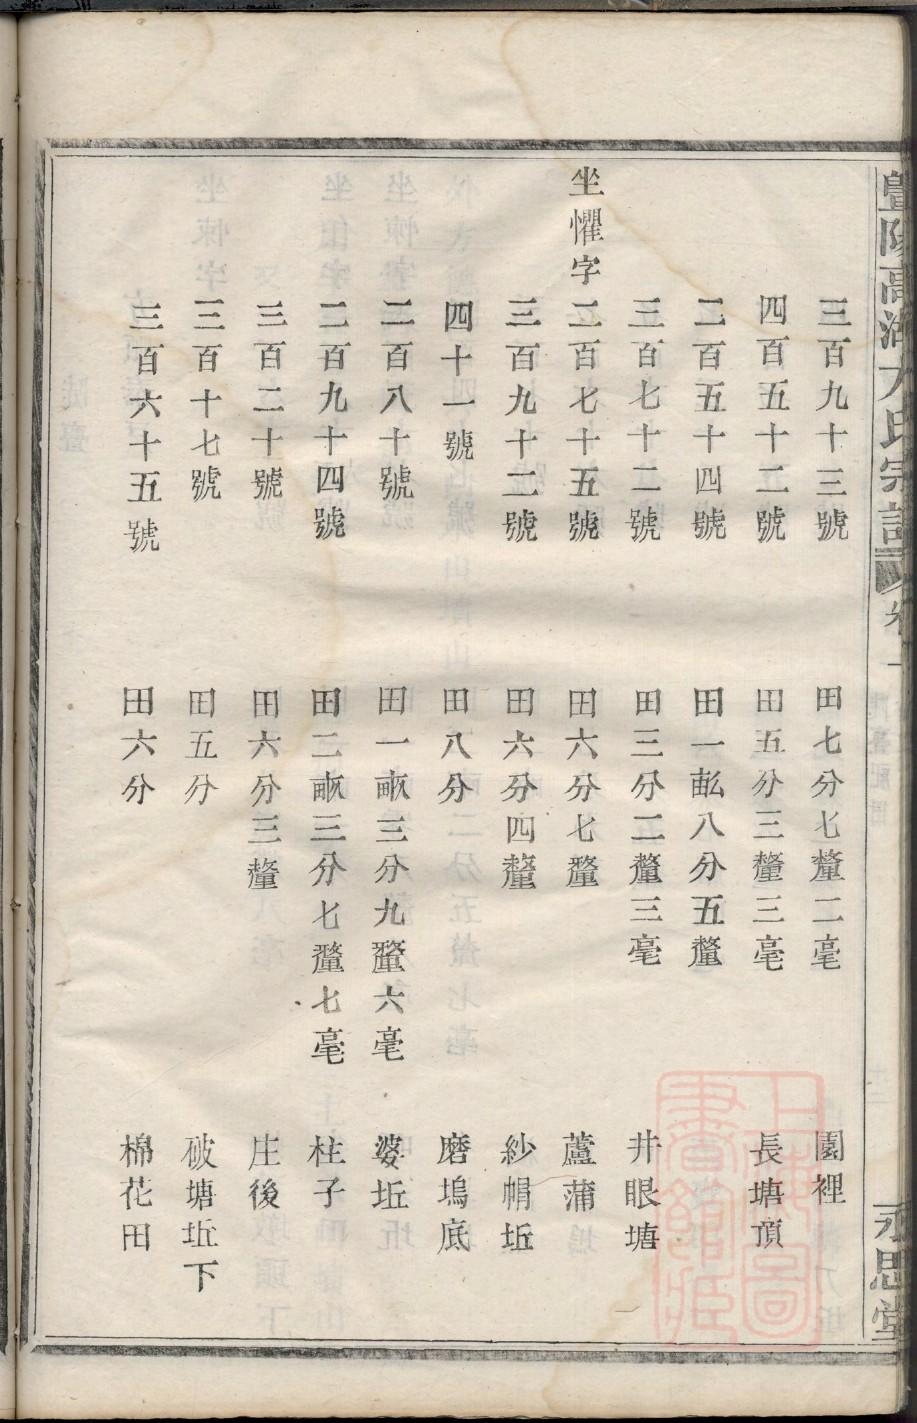 暨陽高湖氏宗譜 卷一 永思堂
三百九十三號 田七分七釐二毫 園裡
四百五十二號 田五分三釐三毫 長塘頂
二百五十四號 田一畝八分五釐
三百七十二號 田三分二釐三毫 井眼塘
坐懼字二百七十五號 田六分七釐 蘆蒲
三百九十二號 田六分四釐 紗帽坵
四十一號 田八分 磨塢底
二百八十號 田一畝三分九釐六毫 婆坵
二百九十四號 田二畝三分七釐七毫 柱子
三百二十號 田六分三釐 庄後
三百十七號 田五分 破塘坵下
三百六十五號 田六分 棉花田
上海圖書館藏